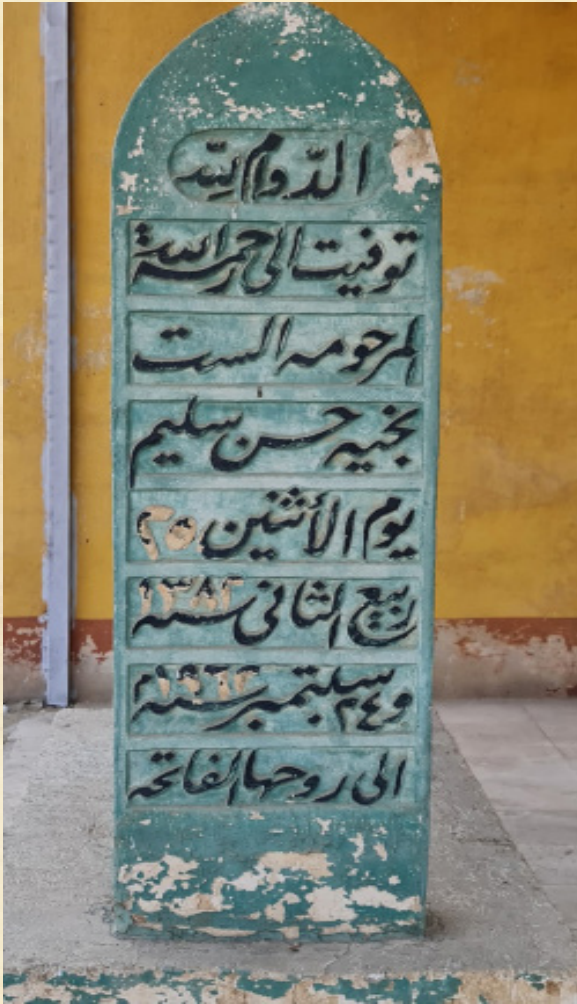 الدّوام لِلّه
توفيت الى رحمة الله
المرحومه الست
نجيه حسن سليم
يوم الأثنين ٢٥
ربيع الثانى سنه ١٣٨٢
و٢٤ سبتمبر سنه ١٩٦٢م
الى روحها الفاتحه